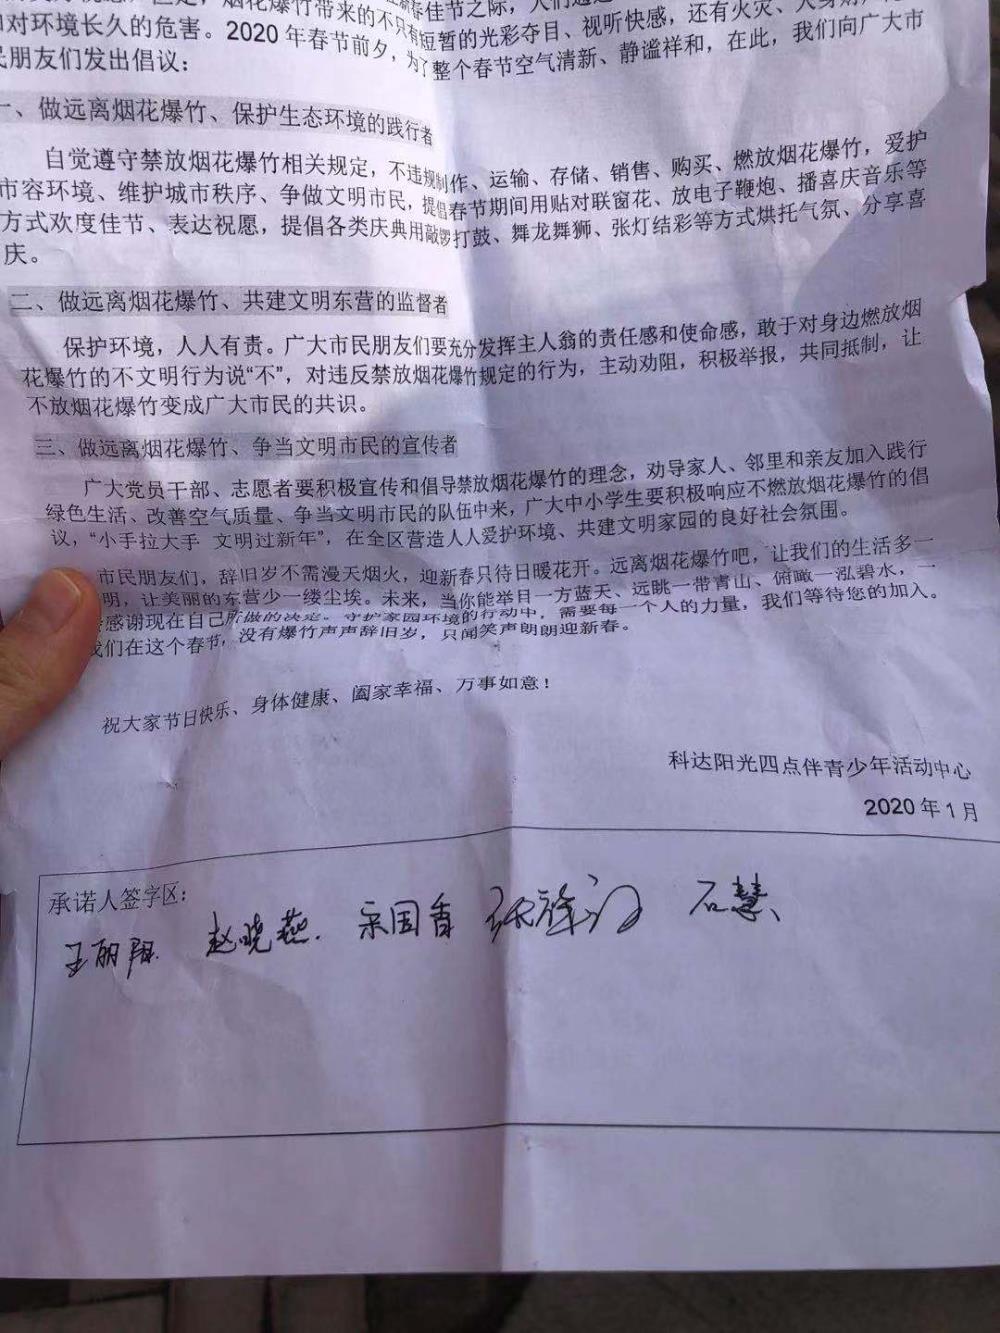 佳节之际，人们
烟花爆竹带来的不只有短暂的光彩夺目、视听快感，还有火灾、人身
对环境长久的危害。2020年春节前夕，为了整个春节空气清新、静谧祥和，在此，我们向广大市
民朋友们发出倡议：
一、做远离烟花爆竹、保护生态环境的践行者
自觉遵守禁放烟花爆竹相关规定，不违规制作、运输、存储、销售、购买、燃放烟花爆竹，爱护
市容环境、维护城市秩序、争做文明市民，提倡春节期间用贴对联窗花、放电子鞭炮、播喜庆音乐等
方式欢度佳节、表达祝愿，提倡各类庆典用敲锣打鼓、舞龙舞狮、张灯结彩等方式烘托气氛、分享喜
庆。
二、做远离烟花爆竹、共建文明东营的监督者
保护环境，人人有责。广大市民朋友们要充分发挥主人翁的责任感和使命感，敢于对身边燃放烟
花爆竹的不文明行为说“不”，对违反禁放烟花爆竹规定的行为，主动劝阻，积极举报，共同抵制，让
不放烟花爆竹变成广大市民的共识。
三、做远离烟花爆竹、争当文明市民的宣传者
广大党员干部、志愿者要积极宣传和倡导禁放烟花爆竹的理念，劝导家人、邻里和亲友加入践行
绿色生活、改善空气质量、争当文明市民的队伍中来，广大中小学生要积极响应不燃放烟花爆竹的倡
议，“小手拉大手 文明过新年”，在全区营造人人爱护环境、共建文明家园的良好社会氛围。
市民朋友们，辞旧岁不需漫天烟火，迎新春只待日暖花开。远离烟花爆竹吧，让我们的生活多一
明，让美丽的东营少一缕尘埃。未来，当你能举目一方蓝天、远眺一带青山、俯瞰一泓碧水，一
感谢现在自己所做的决定。守护家园环境的行动中，需要每一个人的力量，我们等待您的加入。
我们在这个春节，没有爆竹声声辞旧岁，只闻笑声朗朗迎新春。
祝大家节日快乐、身体健康、阖家幸福、万事如意！
科达阳光四点伴青少年活动中心
2020年1月
承诺人签字区：
王丽阳 赵晓燕 宋国香 石慧